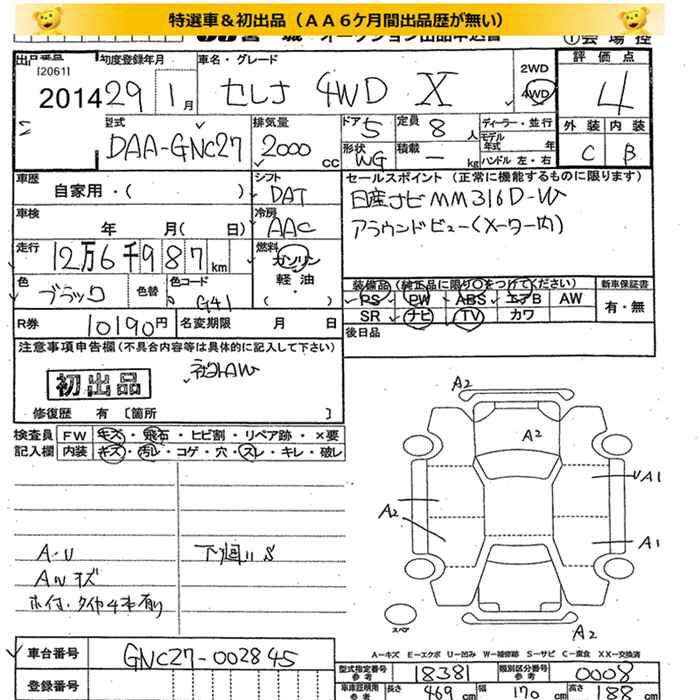 特選車＆初出品（ＡＡ６ケ月間出品歴が無い）
宮 城 オークション出品申込書 ①会 場 控
出品番号 初度登録年月 車名・グレード 2WD 4WD 評 価 点
[2061]
2014 29年 1月 セレナ 4WD X 4
型式 DAA-GNC27 排気量 2000 cc ドア 5 定員 8 人 ディーラー・並行 外 装 内 装
形状 WG 積載 - kg モデル年式 年 ハンドル 左・右 C B
車歴 自家用・( ) シフト DAT セールスポイント (正常に機能するものに限ります)
車検 年 月( 日) 冷房 AAC 日産ナビ MM316D-W
アラウンドビュー(メーター内)
走行 12万6千987km 燃料 ガソリン 軽油・( )
色 ブラック 色替 色コード G41 装備品 (純正品に限り○をつけてください) 新車保証書
PS PW ABS エアB AW 有・無
SR ナビ TV カワ
R券 10190円 名変期限 月 日 後日品
注意事項申告欄 (不具合内容等は具体的に記入して下さい)
社外AW
初出品
修復歴 有 〔箇所 〕
検査員 FW キズ・飛石・ヒビ割・リペア跡・×要
記入欄 内装 キズ・汚レ・コゲ・穴・スレ・キレ・破レ
A2
A2
A1
A2
A1
A2
A・U 下廻り S
Aハキズ
ホイール・タイヤ4本有り
スペア
A-キズ E-エクボ U-凹み W-補修跡 S-サビ C-腐食 XX-交換済
車台番号 GNC27-002845
型式指定番号 参考 18381 類別区分番号 参考 0008
登録番号
車庫証明用 参考 長さ 469 cm 幅 170 cm 高さ 188 cm